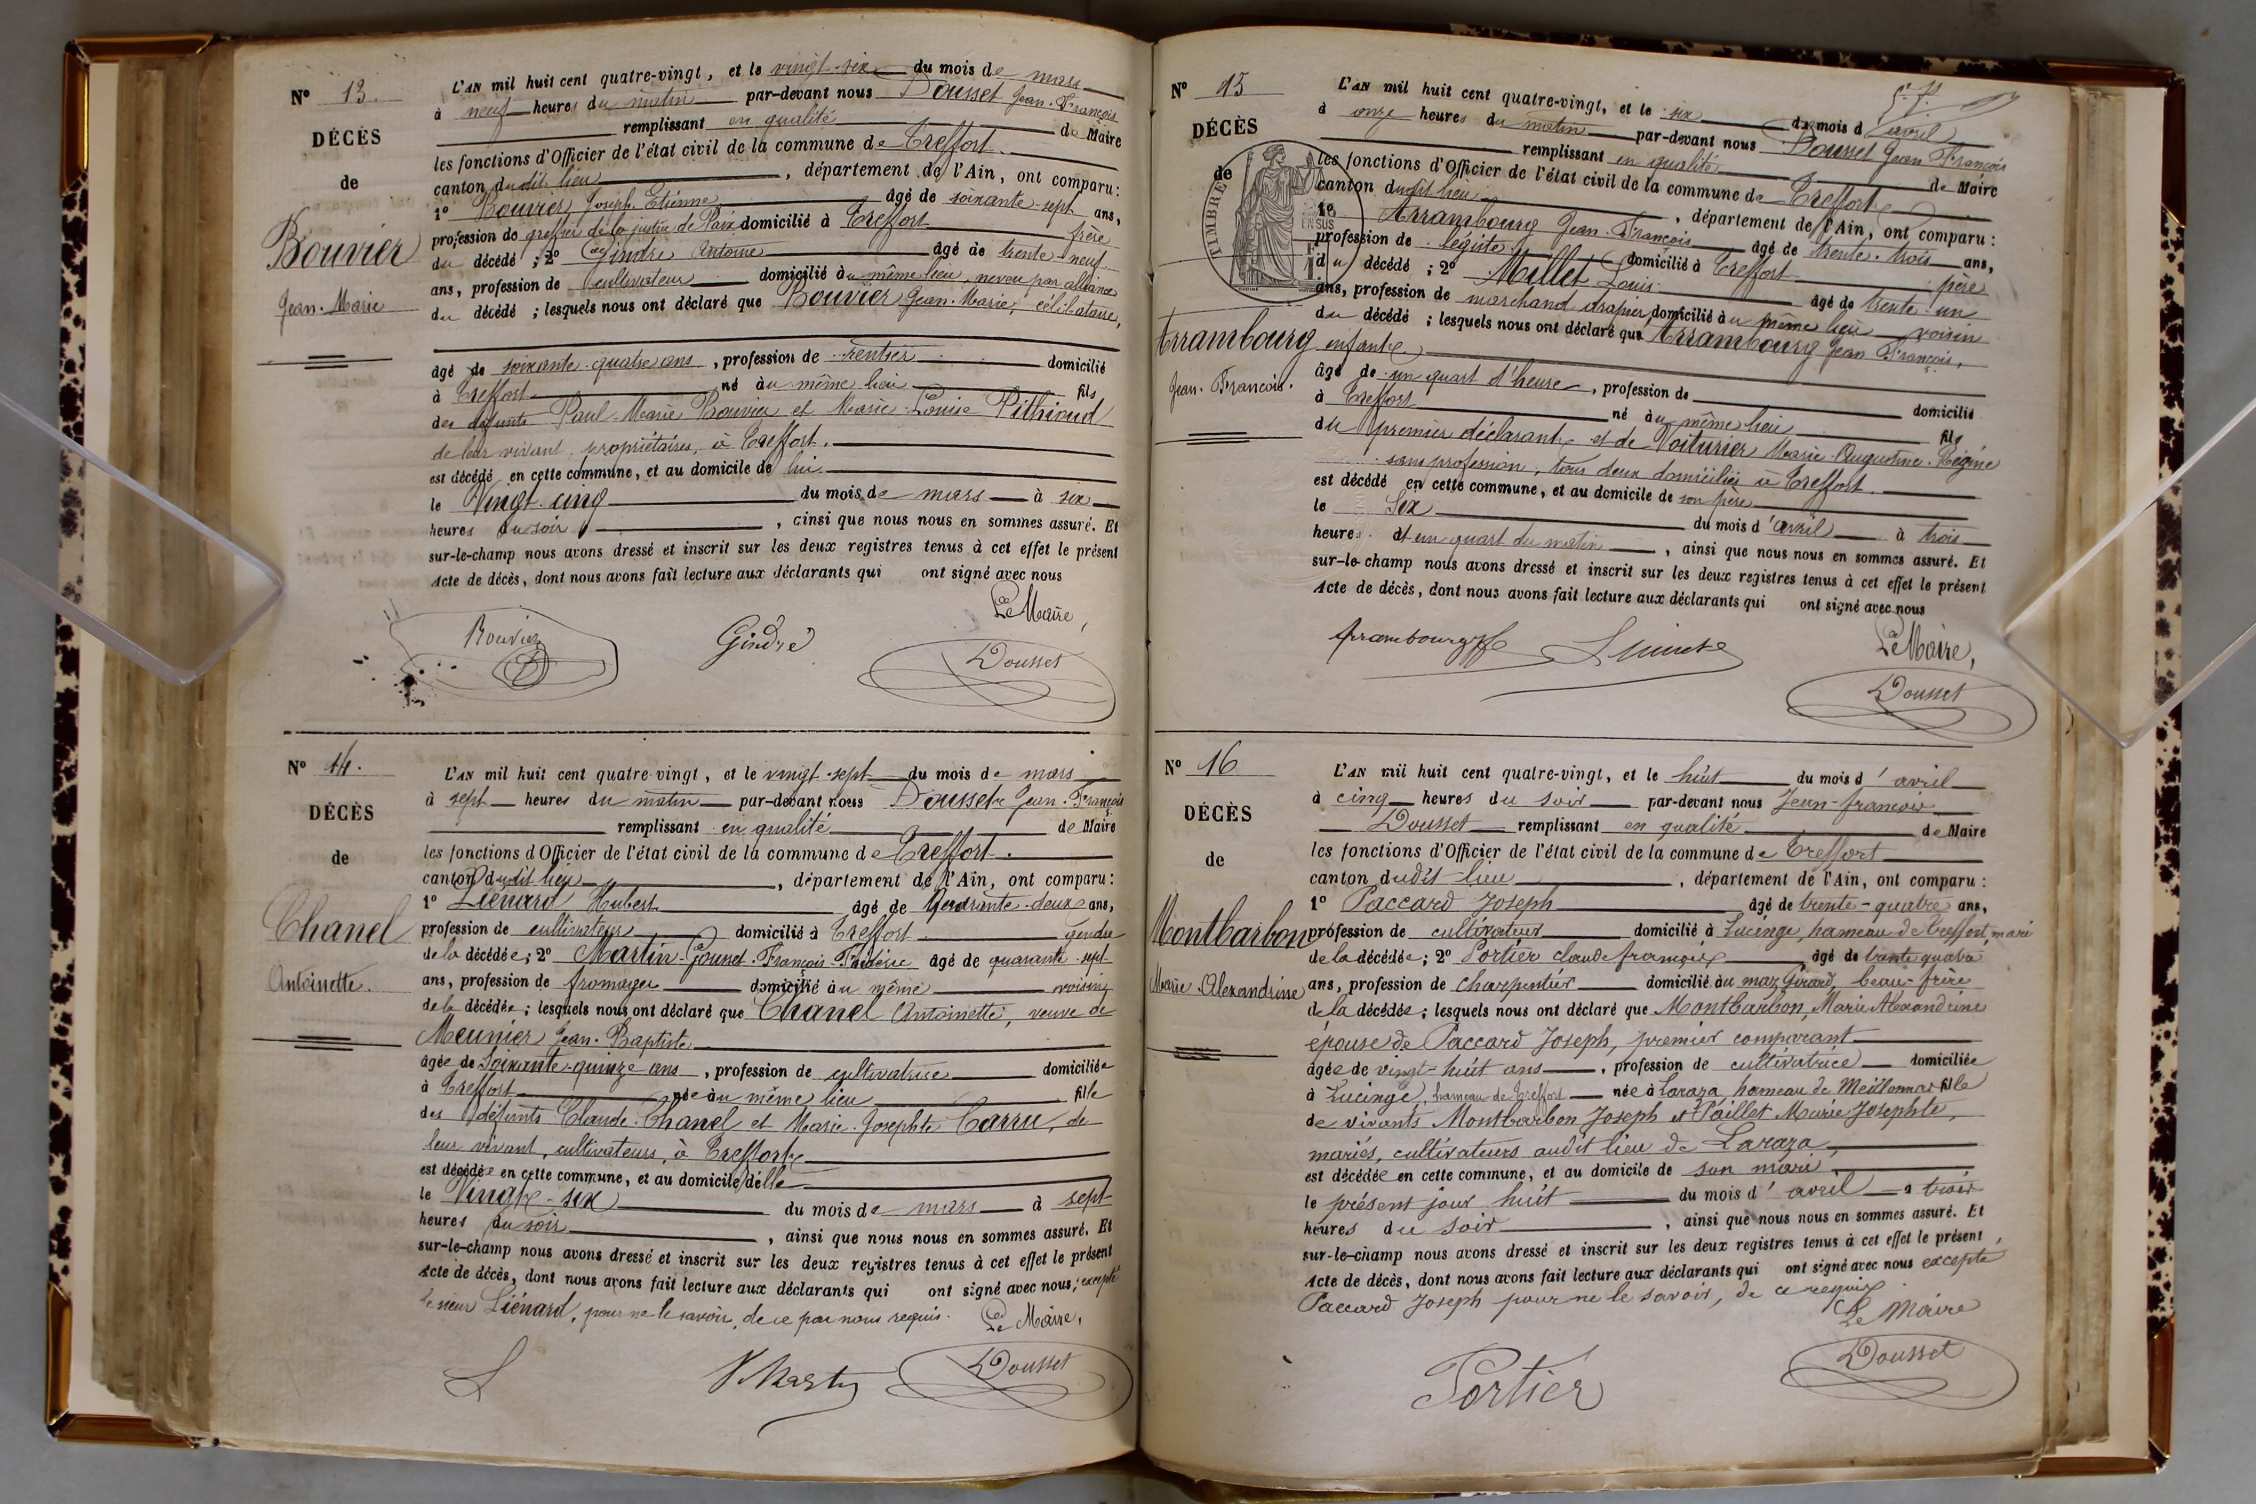 N° 13.
DÉCÈS
de
Bouvier
Jean-Marie
L'AN mil huit cent quatre-vingt, et le vingt-six du mois de mars
à neuf heures du matin par-devant nous Dousset Jean-François
remplissant en qualité de Maire
les fonctions d'Officier de l'état civil de la commune de Treffort.
canton dudit lieu, département de l'Ain, ont comparu:
1° Bouvier Joseph Etienne âgé de soixante-sept ans,
profession de greffier de la justice de Paix domicilié à Treffort frère
du décédé; 2° Gindre Antoine âgé de trente-neuf
ans, profession de cultivateur domicilié au même lieu, neveu par alliance
du décédé; lesquels nous ont déclaré que Bouvier Jean-Marie, célibataire,
âgé de soixante-quatre ans, profession de rentier domicilié
à Treffort né au même lieu fils
des défunts Paul-Marie Bouvier et Marie-Louise Pithioud
de leur vivant propriétaires, à Treffort.
est décédé en cette commune, et au domicile de lui
le Vingt-cinq du mois de mars à six
heures du soir, ainsi que nous nous en sommes assuré. Et
sur-le-champ nous avons dressé et inscrit sur les deux registres tenus à cet effet le présent
Acte de décès, dont nous avons fait lecture aux déclarants qui ont signé avec nous
Le Maire,
Bouvier Gindre Dousset
N° 14.
DÉCÈS
de
Chanel
Antoinette.
L'AN mil huit cent quatre-vingt, et le vingt-sept du mois de mars
à sept heures du matin par-devant nous Dousset Jean-François
remplissant en qualité de Maire
les fonctions d'Officier de l'état civil de la commune de Treffort.
canton dudit lieu, département de l'Ain, ont comparu:
1° Liénard Hubert âgé de Quarante-deux ans,
profession de cultivateur domicilié à Treffort gendre
de la décédée; 2° Martin-Gounet François-Frédéric âgé de quarante-sept
ans, profession de fromager domicilié au même voisin
de la décédée; lesquels nous ont déclaré que Chanel Antoinette, veuve de
Meunier Jean-Baptiste
âgée de soixante-quinze ans, profession de cultivatrice domiciliée
à Treffort née au même lieu fille
des défunts Claude Chanel et Marie-Josephte Carru, de
leur vivant, cultivateurs, à Treffort
est décédée en cette commune, et au domicile d'elle
le Vingt-six du mois de mars à sept
heures du soir, ainsi que nous nous en sommes assuré. Et
sur-le-champ nous avons dressé et inscrit sur les deux registres tenus à cet effet le présent
Acte de décès, dont nous avons fait lecture aux déclarants qui ont signé avec nous, excepté
le sieur Liénard, pour ne le savoir, de ce par nous requis. Le Maire,
Dousset
N° 15
DÉCÈS
de
TIMBRE
Arrambourg
Jean-François.
L'AN mil huit cent quatre-vingt, et le six du mois d'avril
à onze heures du matin par-devant nous Dousset Jean François
remplissant en qualité de Maire
les fonctions d'Officier de l'état civil de la commune de Treffort
canton dudit lieu, département de l'Ain, ont comparu:
1° Arrambourg Jean-François âgé de trente-trois ans,
profession de légiste domicilié à Treffort père
du décédé; 2° Millet Louis âgé de trente-un
ans, profession de marchand drapier, domicilié au même lieu voisin
du décédé; lesquels nous ont déclaré que Arrambourg Jean François,
enfant
âgé de un quart d'heure, profession de domicilié
à Treffort né au même lieu fils
du premier déclarant et de Voiturier Marie-Augustine-Régine
sans profession, tous deux domiciliés à Treffort.
est décédé en cette commune, et au domicile de son père
le Six du mois d'avril à trois
heures et un quart du matin, ainsi que nous nous en sommes assuré. Et
sur-le-champ nous avons dressé et inscrit sur les deux registres tenus à cet effet le présent
Acte de décès, dont nous avons fait lecture aux déclarants qui ont signé avec nous
Le Maire,
Arrambourg Dousset
N° 16
DÉCÈS
de
Montbarbon
Marie-Alexandrine
L'AN mil huit cent quatre-vingt, et le huit du mois d'avril
à cinq heures du soir par-devant nous Jean-françois
Dousset remplissant en qualité de Maire
les fonctions d'Officier de l'état civil de la commune de Treffort
canton dudit-lieu, département de l'Ain, ont comparu:
1° Paccard Joseph âgé de trente-quatre ans,
profession de cultivateur domicilié à Lucinge, hameau de Treffort, mari
de la décédée; 2° Portier claude françois âgé de trente quatre
ans, profession de charpentier domicilié au maz Girard, beau-frère
de la décédée; lesquels nous ont déclaré que Montbarbon, Marie Alexandrine
épouse de Paccard Joseph, premier comparant
âgée de vingt-huit ans, profession de cultivatrice domiciliée
à Lucinge, hameau de Treffort née à Laraza hameau de Meillonnas fille
de vivants Montbarbon Joseph et Paillet Marie Josephte,
mariés, cultivateurs audit lieu de Laraza
est décédée en cette commune, et au domicile de son mari
le présent jour huit du mois d'avril à trois
heures du soir, ainsi que nous nous en sommes assuré. Et
sur-le-champ nous avons dressé et inscrit sur les deux registres tenus à cet effet le présent
Acte de décès, dont nous avons fait lecture aux déclarants qui ont signé avec nous excepté
Paccard Joseph pour ne le savoir, de ce requis
Le Maire
Portier Dousset